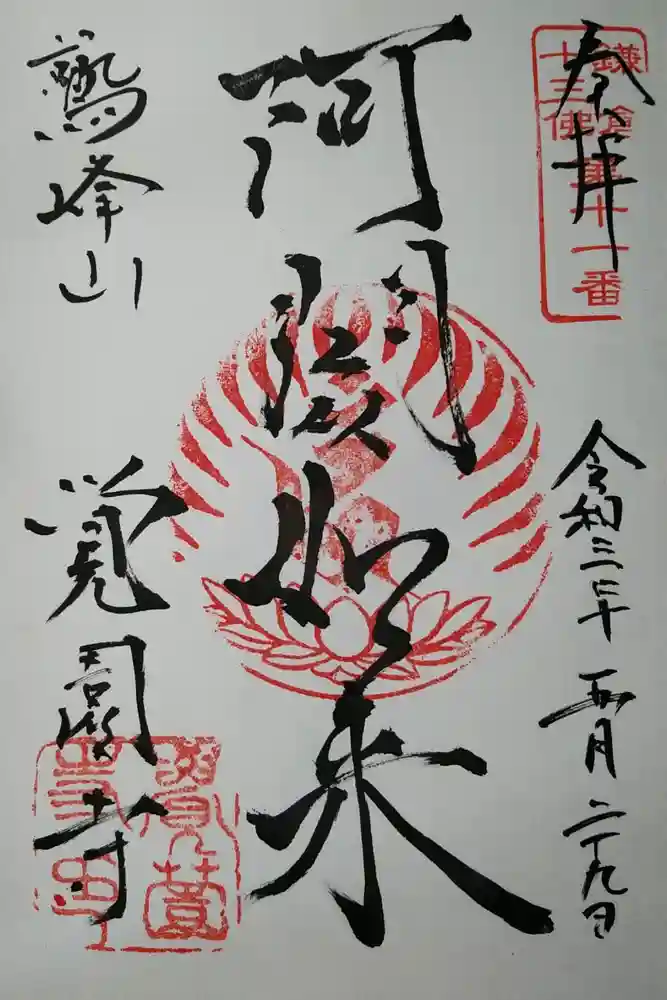 奉拝
鎌倉
十三佛
第十一番
令和三年
五月
二十九日
阿閦如来
鷲峰山
覚園寺